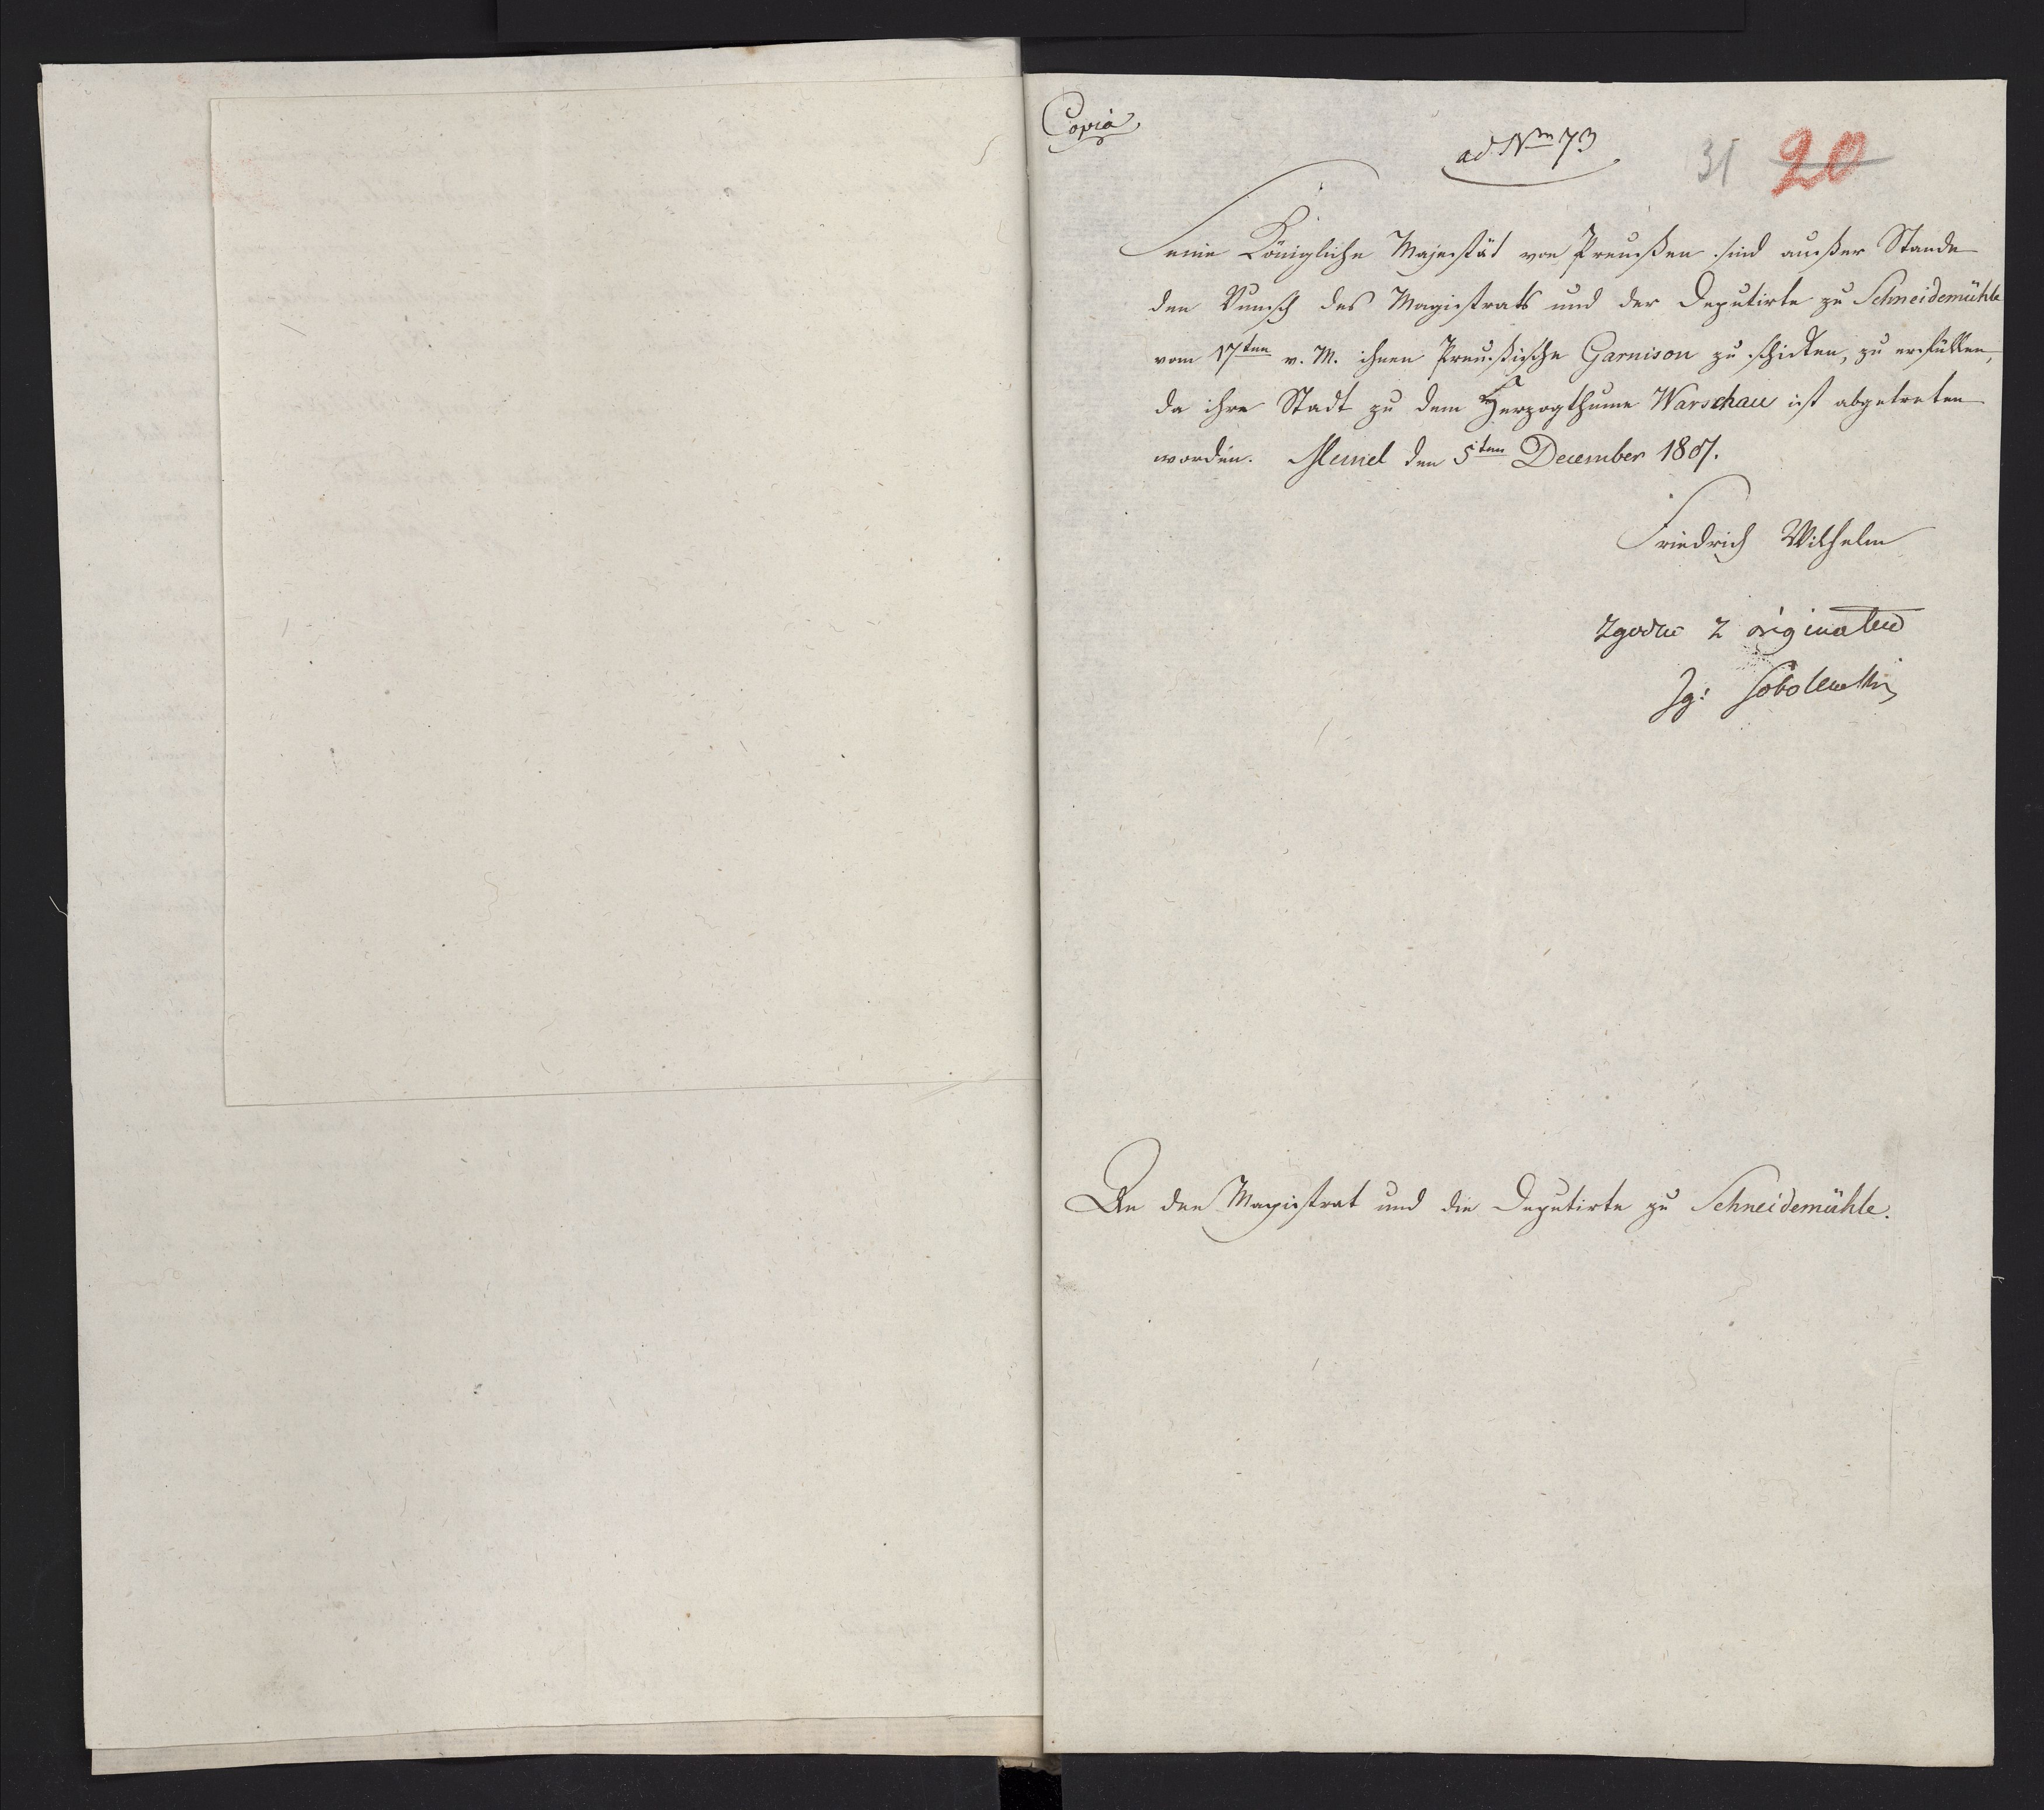 Copia
ad Nrm 73
31 20
Seine Königliche Majestät von Preußen sind außer Stande
den Wunsch des Magistrats und der Deputirte zu Schneidemühle
vom 17ten v. M. ihnen Preußische Garnison zu schicken, zu erfüllen,
da ihre Stadt zu dem Herzogthume Warschau ist abgetreten
worden. Memel den 5ten December 1807.
Friedrich Wilhelm
Zgodno z originałem
Ig: Sobolewski
An den Magistrat und die Deputirte zu Schneidemühle.